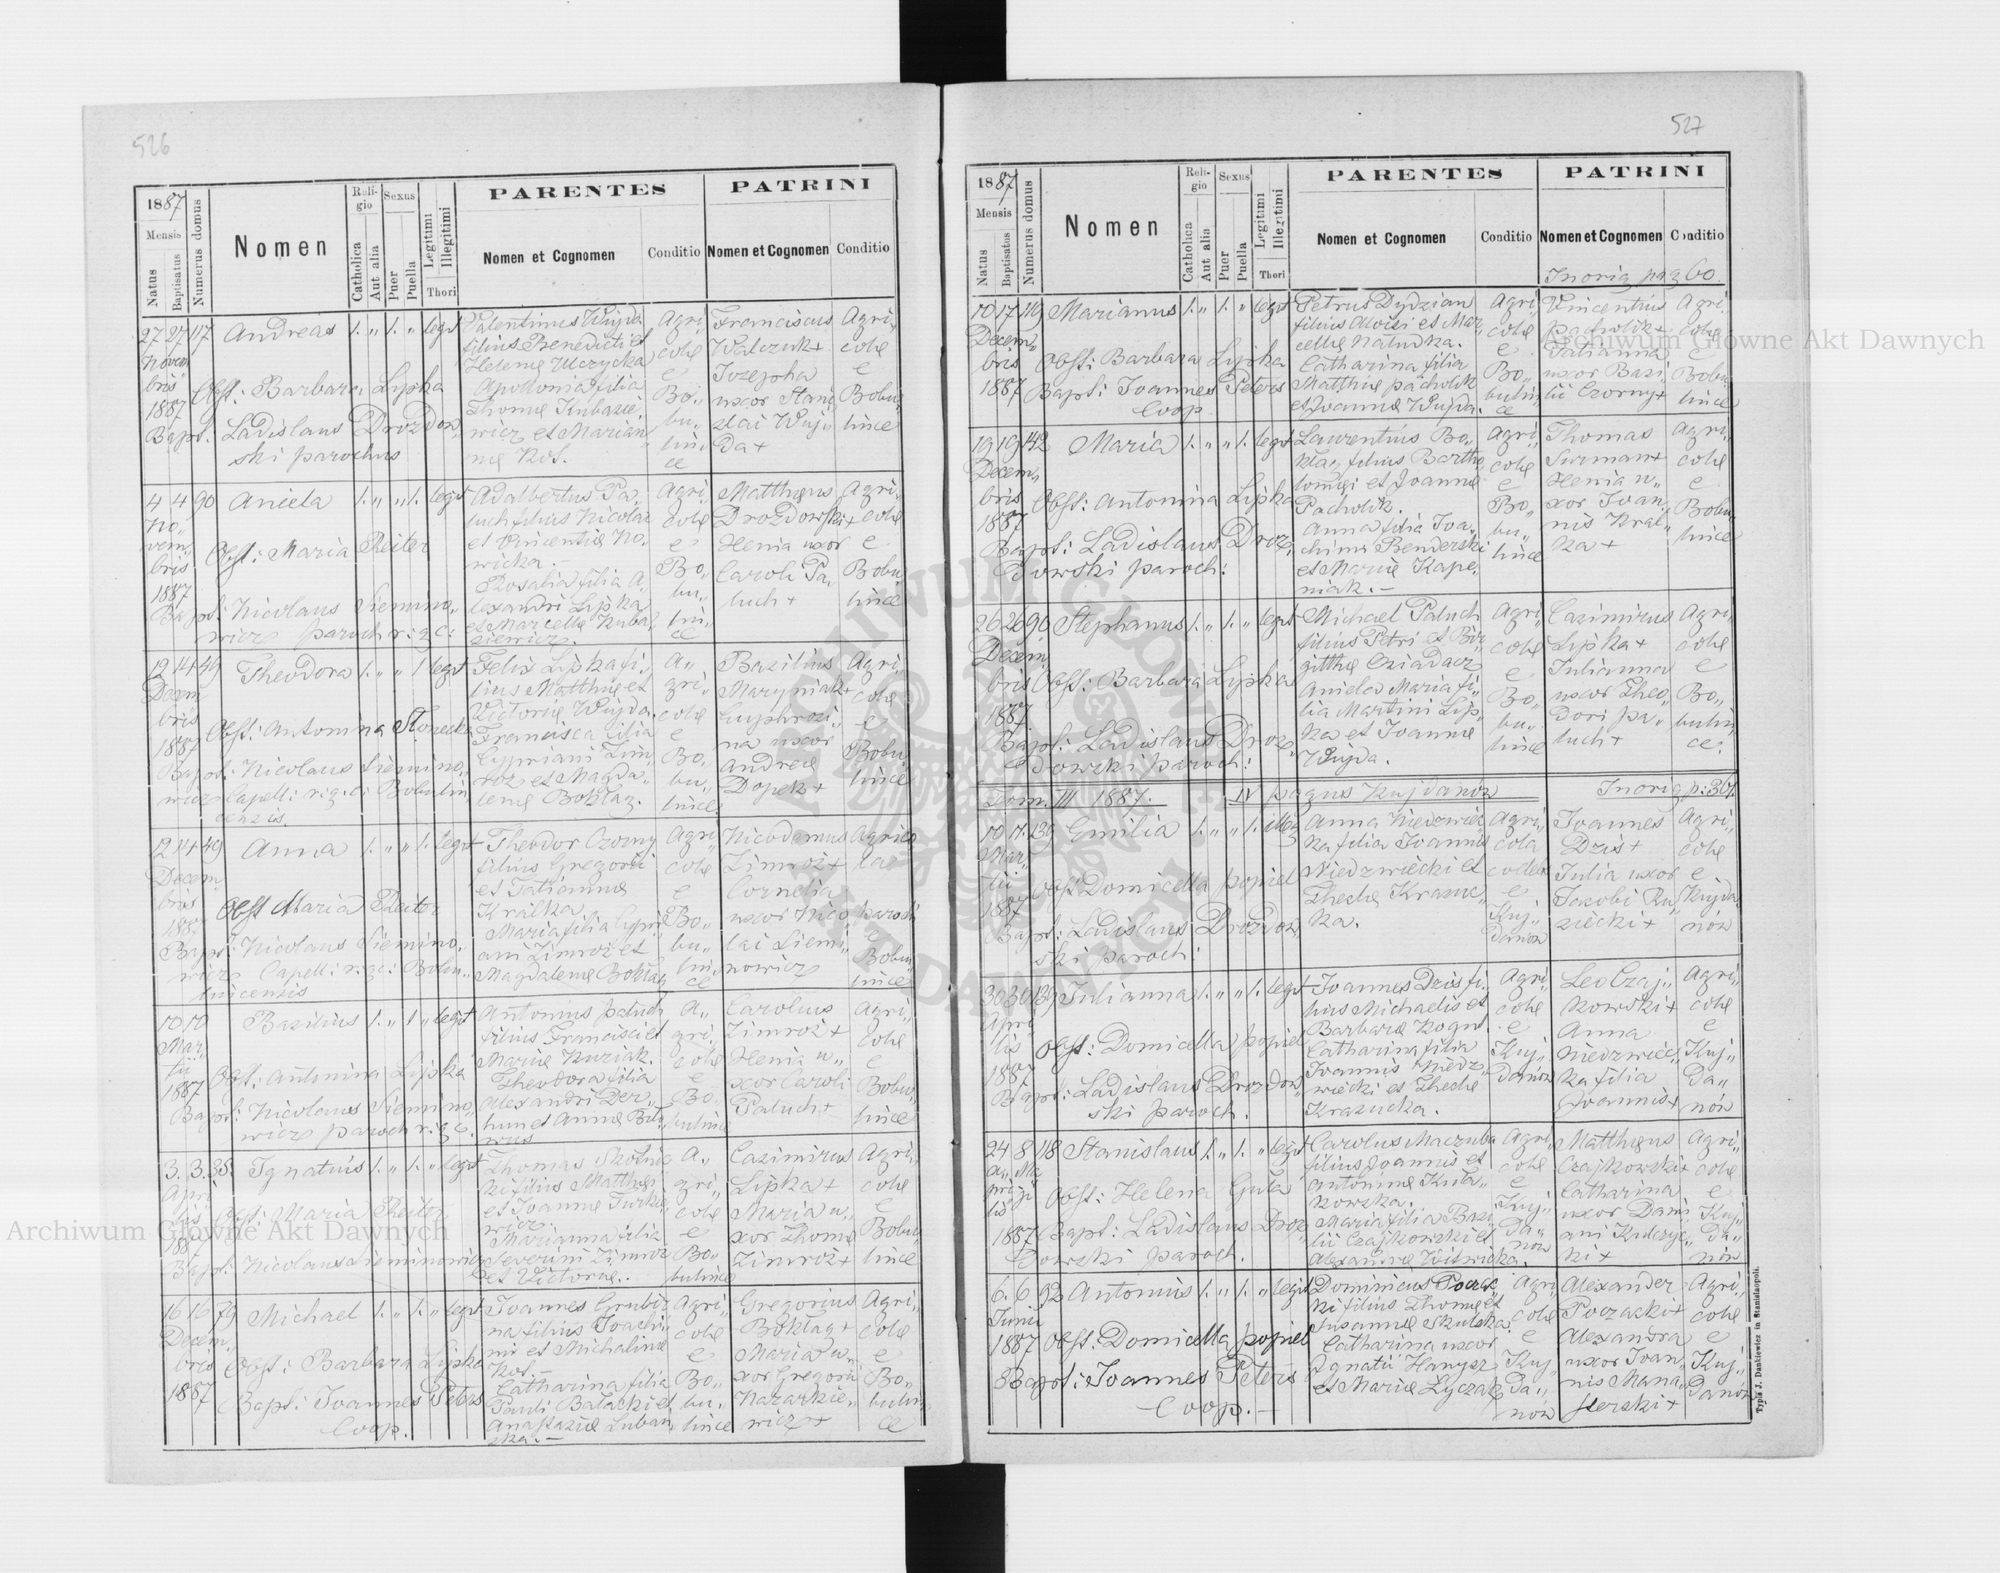 526
1887
Mensis
Natus
Baptisatus
Numerus domus
Nomen
Religio
Catholica
Aut alia
Sexus
Puer
Puella
Legitimi
Illegitimi
Thori
PARENTES
Nomen et Cognomen
Conditio
PATRINI
Nomen et Cognomen
Conditio
27 27 117 Andreas 1. „ 1. „ legit
Novem
bris
1887
Obst: Barbara Lipka
Bapt: Ladislaus Drozdow„
ski parochus
Valentinus Wujda
filius Benedicti et
Helenæ Ulczycka
Apollonia filia
Thomæ Kubasie„
wicz et Marian„
næ Kos.
Agri„
colæ
e
Bo„
bu„
lin„
ce
Franciscus
Walczuk +
Josepha
uxor Stani„
slai Wuj„
da +
Agri„
colæ
e
Bobu„
lince
4 4 90 Aniela 1. „ „ 1. legit
No„
vem„
bris
1887
Obst: Maria Reiter
Bapt: Nicolaus Siemino„
wicz paroch r: g: c:
Adalbertus Pa„
luch filius Nicolai
et Vincentiæ No„
wicka.
Rosalia filia A„
lexandri Lipka
et Marcellæ Kuba„
siewicz.
Agri„
colæ
e
Bo„
bu„
lin„
ce
Matthæus
Drozdowski +
Henia uxor
Caroli Pa„
luch +
Agri„
colæ
e
Bobu„
lince
12 14 49 Theodora 1. „ „ 1 legit
Decem
bris
1887
Obst: Antonina Słonecka
Bapt: Nicolaus Siemino„
wicz Capell: r: g: c: Bobulin„
censis.
Felix Lipka fi„
lius Matthiæ et
Victoriæ Wujda.
Francisca filia
Cypriani Zim„
roz et Magda„
lenæ Boktaz.
A„
gri„
colæ
e
Bo„
bu„
lince
Basilius
Maryniak +
Euphrosi„
na uxor
Andreæ
Dopek +
Agri„
colæ
e
Bobu„
lince
12 14 49 Anna 1. „ „ 1. legit
Decem„
bris
1887
Obst Maria Reiter
Bapt: Nicolaus Siemino„
wicz Capell: r: g: c: Bobu„
lincensis
Theodor Czorny
filius Gregorii
et Tatiannæ
Kralka
Maria filia Cypri
ani Zimroz et
Magdalenæ Boktaz
Agri„
colæ
e
Bo„
bu„
lin„
ce
Nicodemus
Zimroz +
Cornelia
uxor Nico
lai Siemi„
nowicz
Agrico
la
paroch
e
Bobu„
lince
10 10 Basilius 1. „ 1 „ legit
Mar„
tii
1887
Obst: Antonina Lipka
Bapt: Nicolaus Siemino„
wicz paroch r: g: c.
Antonius Paluch
filius Francisci et
Mariæ Kuziak.
Theodora filia
Alexandri Der„
hun et Annæ
A„
gri„
colæ
e
Bo„
bulince
Carolus
Zimroz +
Henia u„
xor Caroli
Paluch +
Agri„
colæ
e
Bobu„
lince
3. 3. 38. Ignatius 1. „ 1. „ legit
Apri
lis
1887
Obst: Maria Reiter
Bapt: Nicolaus Sieminowicz
Thomas Skotnic
ki filius Matthæi
et Joannæ Turkie„
wicz.
Marianna filia
Severini Zimroz
et Victoriæ.
A„
gri„
colæ
e
Bo„
bulince
Casimirus
Lipka +
Maria u„
xor Thomæ
Zimroz +
Agri„
colæ
e
Bobu„
lince
16 16 79 Michael 1. „ 1. „ legit
Decem„
bris
1887
Obst: Barbara Lipka
Bapt: Joannes Peters
Coop.
Joannes Grubiz
na filius Joachi„
mi et Michalinæ
Kos.
Catharina filia
Pauli Bałacki et
Anastasiæ Luban„
ska.
Agri„
colæ
e
Bo„
bu„
lince
Gregorius
Boktaz +
Maria u„
xor Gregorii
Nazarkie„
wicz +
Agri„
colæ
e
Bo„
bulin„
ce
527
1887
Mensis
Natus
Baptisatus
Numerus domus
Nomen
Religio
Catholica
Aut alia
Sexus
Puer
Puella
Legitimi
Illegitimi
Thori
PARENTES
Nomen et Cognomen
Conditio
PATRINI
Nomen et Cognomen
Conditio
In orig pag 60.
10 17 119 Marianus 1. „ 1. „ legit
Decem„
bris
1887
Obst: Barbara Lipka
Bapt: Joannes Peters
Coop.
Petrus Dydzian
filius Aloisi et Mar„
cellæ Naludka.
Catharina filia
Matthiæ Pacholik
et Joannæ Wujda.
Agri„
colæ
e
Bo„
bulin„
ce
Vincentius
Pacholik +
Tatianna
uxor Basi„
lii Czorny +
Agri„
colæ
e
Bobu„
lince
19 19 142 Maria 1. „ „ 1. legit
Decem„
bris
1887
Obst: Antonina Lipka
Bapt: Ladislaus Droz„
dowski paroch:
Laurentius Bo„
ktaz filius Bartho„
lomæi et Joannæ
Pacholik.
Anna filia Joa„
chimi Benderski
et Mariæ Kape„
niak.
Agri„
colæ
e
Bo„
bu„
lince
Thomas
Surman +
Henia u„
xor Joan„
nis Kral„
ka +
Agri„
colæ
e
Bobu„
lince
26 26 90 Stephanus 1. „ 1. „ legit
Decem„
bris
1887
Obst: Barbara Lipka
Bapt: Ladislaus Droz„
dowski paroch:
Michael Paluch
filius Petri et Bri„
gittæ Cziadacz
Aniela Maria fi„
lia Martini Lip„
ka et Joannæ
Wujda.
Agri„
colæ
e
Bo„
bu„
lince
Casimirus
Lipka +
Julianna
uxor Theo„
dori Pa„
luch +
Agri„
colæ
e
Bo„
bulin„
ce.
Tom: III 1887. IV pagus Kujdanów In orig p: 361.
10 11. 139 Emilia 1. „ „ 1. illeg
Mar„
tii
1887
Obst Domicella Popiel
Bapt: Ladislaus Drozdow„
ski paroch:
Anna Niedzwiec
ka filia Joannis
Niedzwiecki et
Theclæ Krasuc„
ka.
Agri„
cola
e
Kuj„
danów
Joannes
Dzis +
Julia uxor
Jacobi Ru„
ziecki +
Agri„
colæ
e
Kujda„
nów
30 30 139 Julianna 1. „ „ 1. legit
Apri„
lis
1887
Obst: Domicella Popiel
Bapt: Ladislaus Drozdow„
ski paroch.
Joannes Dzis fi„
lius Michaelis et
Barbaræ Kogut.
Catharina filia
Joannis Niedz„
wiecki et Theclæ
Krasucka.
Agri„
colæ
e
Kuj„
danów
Leo Czaj„
kowski +
Anna
Niedzwiec„
ka filia
Joannis +
Agri„
colæ
e
Kuj„
da„
nów
24 8 118 Stanislaus 1. „ 1. „ legit
A„ Ma
pri ji
lis
1887
Obst: Helena Guła
Bapt: Ladislaus Droz„
dowski paroch.
Carolus Maczuba
filius Joannis et
Antoninæ Kula„
kowska.
Maria filia Basi„
lii Czajkowski et
Alexandræ Witwicka.
Agri„
colæ
e
Kuj„
da„
nów
Matthæus
Czajkowski +
Catharina
uxor Dami„
ani Kulczyc„
ki +
Agri„
colæ
e
Kuj„
da„
nów
6. 6 92 Antonius 1. „ 1. „ legit
Junii
1887
Obst: Domicella Popiel
Bapt: Joannes Peters
Coop.
Dominicus Poczac
ki filius Thomæ et
Susannæ Skulska.
Catharina uxor
Ignatii Hanysz
et Mariæ Lyczak
Agri„
colæ
e
Kuj„
da„
nów
Alexander
Poczacki +
Alexandra
uxor Joan„
nis Mana„
sterski +
Agri„
colæ
e
Kuj„
danów
Typis J. Dankiewicz in Stanislaopoli.
Archiwum Główne Akt Dawnych
Archiwum Główne Akt Dawnych
ARCHIVUM GŁÓWNE AKT DAWNYCH